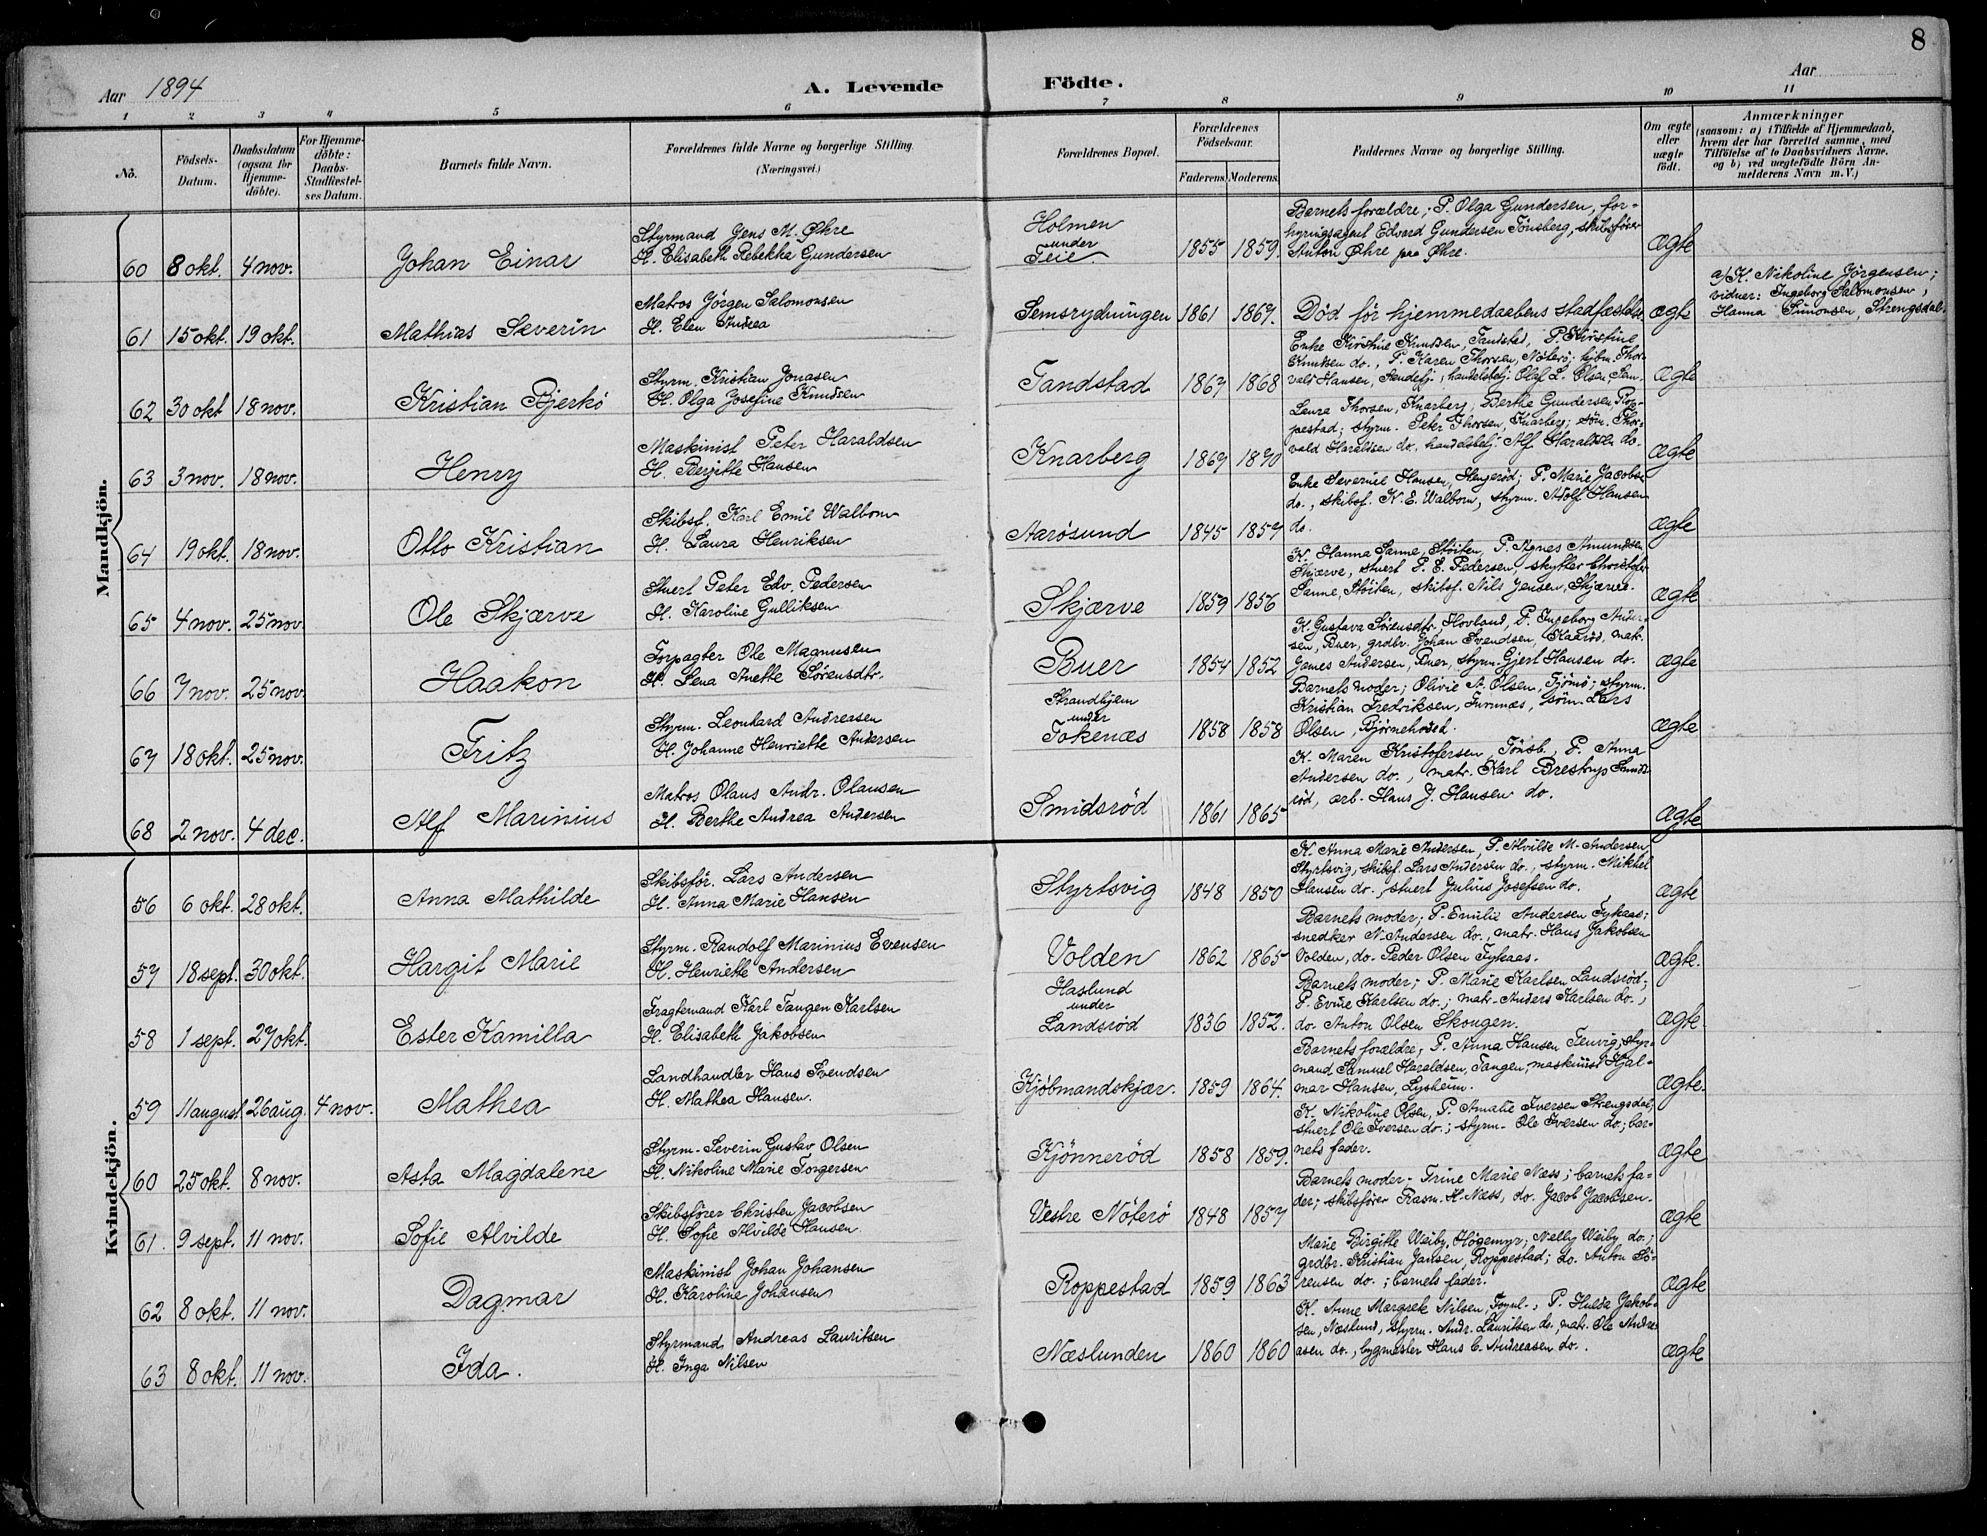 8
Aar 1894
A. Levende Födte.
Aar
1 2 3 4 5 6 7 8 9 10 11
No.
Födsels-Datum.
Daabsdatum (ogsaa for Hjemme-döbte).
For Hjemme-döbte: Daabs-Stadfæstel-ses Datum.
Barnets fulde Navn.
Forældrenes fulde Navne og borgerlige Stilling.
(Næringsvei.)
Forældrenes Bopæl.
Forældrenes Födselsaar.
Faderens. Moderens.
Faddernes Navne og borgerlige Stilling.
Om ægte eller uægte födt.
Anmærkninger
(saasom: a) i Tilfælde af Hjemmedaab,
hvem der har forrettet samme, med
Tilföielse af to Daabsvidners Navne,
og b) ved uægtefödte Börn An-
melderens Navn m. V.)
Mandkjön.
Styrmand Jens M. Øhre
H. Elisabeth Rebekka Gundersen
60 8 okt. 4 nov. Johan Einar
Holmen
under
Teie.
1855 1859.
Barnets forældre; P. Olga Gundersen, for-
hyringsagent Edvard Gundersen Tönsberg, skibsförer
Anton Øhre Øhre.
ægte
Matros Jörgen Salomonsen
H. Elen Andrea
61 15 okt. 19 okt. Mathias Severin
Semsrydningen 1861 1869. Död för hjemmedaabens stadfæstelse ægte
a) K. Nikoline Jörgensen;
vidner: Ingeborg Salomonsen,
Hanna Simonsen, Strengsdal.
Styrm. Kristian Jonasen
H. Olga Josefine Knudsen
62 30 okt 18 nov. Kristian Bjerkö
Tandstad 1867 1868
Enke Kirstine Knudsen, Tandstad, P. Kirstine
Knudsen do., P. Karen Thorsen, Nöterö; Thor-
vald Hansen, Sandefj., handelsbetj. Olaf L. Olsen,
ægte
Maskinist Peter Haraldsen
H. Bergitte Hansen
63 3 nov. 18 nov. Henry
Knarberg 1869 1870
Laura Thorsen, Knarberg, Berthe Gundersen Rop-
pestad; styrm. Peter Thorsen, Knarberg; söm. Thor-
vald Haraldsen do., handelsbetj. Alf Haraldsen do.
ægte
Skibsf. Karl Emil Walbom
H. Laura Henriksen
64 19 okt. 18 nov. Otto Kristian
Aarösund 1845 1857
Enke Severine Hansen, Hengeröd; P. Marie Jacobsen
do., skibsf. K. E. Walbom, styrm. Adolf Hansen
do.
ægte
Stuert Peter Edv. Pedersen
H. Karoline Gulliksen
65 4 nov. 25 nov. Ole Skjærve
Skjærve 1859 1856
K. Hanna Sanne, Stöiten, P. Agnes Amundsen
Skjærve, stuert P. E. Pedersen, skytter
Sanne, Stöiten, skibsf. Nils Jensen, Skjærve.
ægte
Forpagter Ole Magnusen
H. Lena Anette Sörensdtr.
66 7 nov. 25 nov. Haakon
Buer 1854 1852
K. Gustava Sörensdtr, Hovland, P. Ingeborg Ander-
sen, Buer, grdbr. Johan Svendsen, Skaaröd, matr.
James Andersen, Buer, styrm. Gjert Hansen do.
ægte
Styrm. Leonhard Andreasen
H. Johanne Henriette Andersen
67 18 okt. 25 nov. Fritz
Strandhjem
under
Tokenæs
1858 1858
Barnets moder; Olivie A. Olsen, Tjömö; styrm.
Kristian Fredriksen, Furunæs, söm. Lars
Olsen, Björnehoded.
ægte
Matros Olaus Andr. Olausen
H. Berthe Andrea Andersen
68 2 nov. 4 dec. Alf Marinius
Smidsröd 1861 1865
K. Maren Kristofersen, Tönsb., P. Anna
Andersen do., matr. Karl Brestrup Smids-
röd, arb. Hans J. Hansen do.
ægte
Kvindekjön.
Skibsför. Lars Andersen
H. Anna Marie Hansen
56 6 okt. 28 okt. Anna Mathilde
Styrtsvig 1848 1850
K. Anna Marie Andersen, P. Alvilde M. Andersen
Styrtsvig, skibsf. Lars Andersen do., styrm. Mikkel
Hansen do.; stuert Julius Josefsen do.
ægte
Styrm. Randolf Marinius Evensen
H. Henriette Andersen
57 18 sept. 30 okt. Hargit Marie
Volden 1862 1865
Barnets moder; P. Emilie Andersen Fykaas;
snedker N. Andersen do., matr. Hans Jakobsen
Volden, do. Peder Olsen Fykaas.
ægte.
Fragtemand Karl Tangen Karlsen
H. Elisabeth Jakobsen
58 1 sept. 27 okt. Ester Kamilla
Haslund
under
Landsröd
1836 1852.
Barnets moder; P. Marie Karlsen Landsröd;
P. Evine Karlsen do.; matr. Anders Karlsen do.,
do. Anton Olsen Skougen.
ægte.
Landhandler Hans Svendsen
H. Mathea Hansen.
59 11 august 26 aug. 4 nov. Mathea
Kjöbmandskjær. 1859 1864.
Barnets forældre; P. Anna Hansen Tenvig; styr-
mand Samuel Haraldsen, Tangen, maskinist Hjal-
mar Hansen, Lysheim.
ægte.
Styrm. Severin Gustav Olsen
H. Nikoline Marie Torgersen
60 25 okt. 8 nov. Asta Magdalene
Kjönneröd 1858 1859.
K. Nikoline Olsen, P. Amalie Iversen Strengsdal,
stuert Ole Iversen do.; styrm. Ole Iversen do.; bar-
nets fader.
ægte
Skibsförer Christen Jacobsen
H. Sofie Alvilde Hansen
61. 9 sept. 11 nov. Sofie Alvilde
Vestre Nöterö 1848 1857
Barnets moder. Trine Marie Næss; barnets fa-
der; skibsförer Rasm. H. Næss, do. Jacob Jacobsen.
ægte
Maskinist Johan Johansen
H. Karoline Johansen
62 8 okt. 11 nov. Dagmar
Roppestad 1859 1863
Marie Birgitte Weiby, Högemyr; Nelly Weiby do.;
grdbr. Kristian Jansen, Roppestad; do. Anton Sö-
rensen do.; barnets fader.
ægte
Styrmand Andreas Lauritsen
H. Inga Nilsen
63 8 okt. 11 nov. Ida.
Næslunden 1860 1860
K. Anne Margrete Nilsen, P. Hulda Jakob-
sen, Næslund, styrm. Andr. Lauritsen do., matr. Ole Andre-
asen do., bygmester Hans C. Andreasen do.
ægte